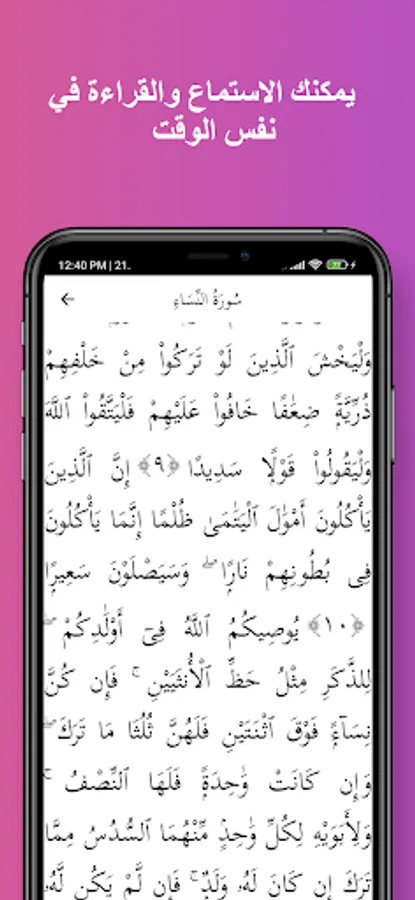 يمكنك الاستماع والقراءة في
نفس الوقت
12:40 PM | 21.
سُورَةُ النِّسَاءِ
وَلْيَخْشَ ٱلَّذِينَ لَوْ تَرَكُوا۟ مِنْ خَلْفِهِمْ
ذُرِّيَّةً ضِعَٰفًا خَافُوا۟ عَلَيْهِمْ فَلْيَتَّقُوا۟ ٱللَّهَ
وَلْيَقُولُوا۟ قَوْلًا سَدِيدًا ﴿٩﴾ إِنَّ ٱلَّذِينَ
يَأْكُلُونَ أَمْوَٰلَ ٱلْيَتَٰمَىٰ ظُلْمًا إِنَّمَا يَأْكُلُونَ
فِى بُطُونِهِمْ نَارًا ۖ وَسَيَصْلَوْنَ سَعِيرًا
﴿١٠﴾ يُوصِيكُمُ ٱللَّهُ فِىٓ أَوْلَٰدِكُمْ ۖ
لِلذَّكَرِ مِثْلُ حَظِّ ٱلْأُنثَيَيْنِ ۚ فَإِن كُنَّ
نِسَآءً فَوْقَ ٱثْنَتَيْنِ فَلَهُنَّ ثُلُثَا مَا تَرَكَ ۖ
وَإِن كَانَتْ وَٰحِدَةً فَلَهَا ٱلنِّصْفُ ۚ
وَلِأَبَوَيْهِ لِكُلِّ وَٰحِدٍ مِّنْهُمَا ٱلسُّدُسُ مِمَّا
تَرَكَ إِن كَانَ لَهُۥ وَلَدٌ ۚ فَإِن لَّمْ يَكُن لَّهُۥ